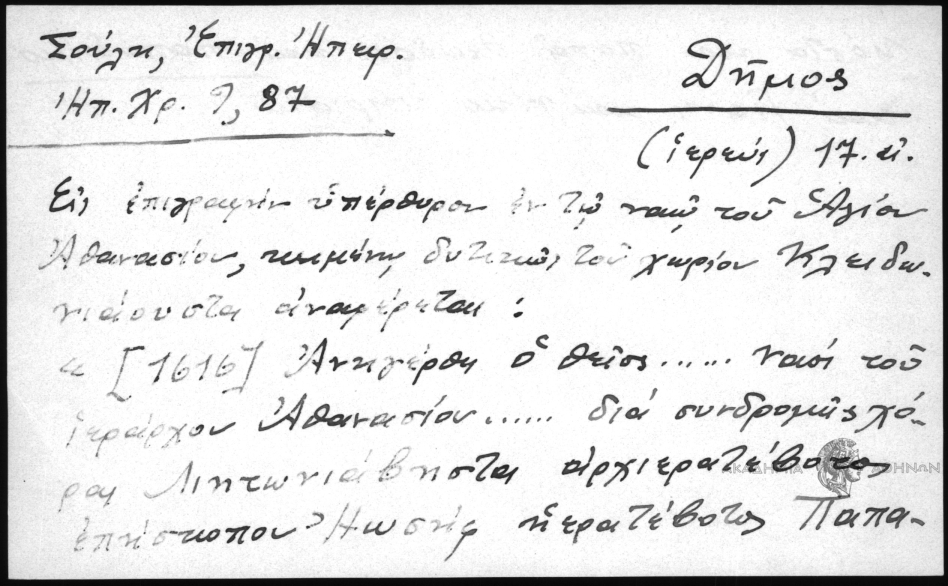 Σούλη, Ἐπιγρ. Ἠπειρ.
Ἠπ. Χρ. 9, 87
Δῆμος
(ἱερεύς) 17. αἰ.
Εἰς ἐπιγραφὴν ὑπέρθυρον ἐν τῷ ναῷ τοῦ Ἁγίου
Ἀθανασίου, κειμένῳ δυτικῶς τοῦ χωρίου Κλειδω-
νιάουστα ἀναφέρεται :
« [1616] Ἀνηγέρθη ὁ θεῖος ...... ναὸς τοῦ
ἱεράρχου Ἀθανασίου ...... διὰ συνδρομῆς χό-
ρας Λιητωνιάβηστα ἀρχιερατέβοτος
ἐπήσκοπου Ἠωσὴφ ἠερατέβοτος Παπα-
ΑΚΑΔΗΜΙΑ ΑΘΗΝΩΝ